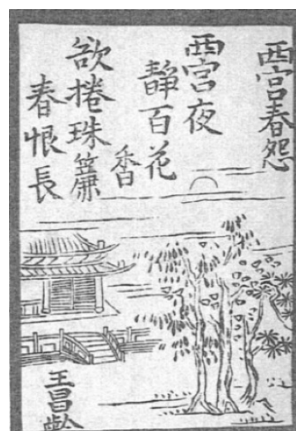 西宮春怨
西宮夜
靜百花
香
欲捲珠簾
春恨長
王昌齡